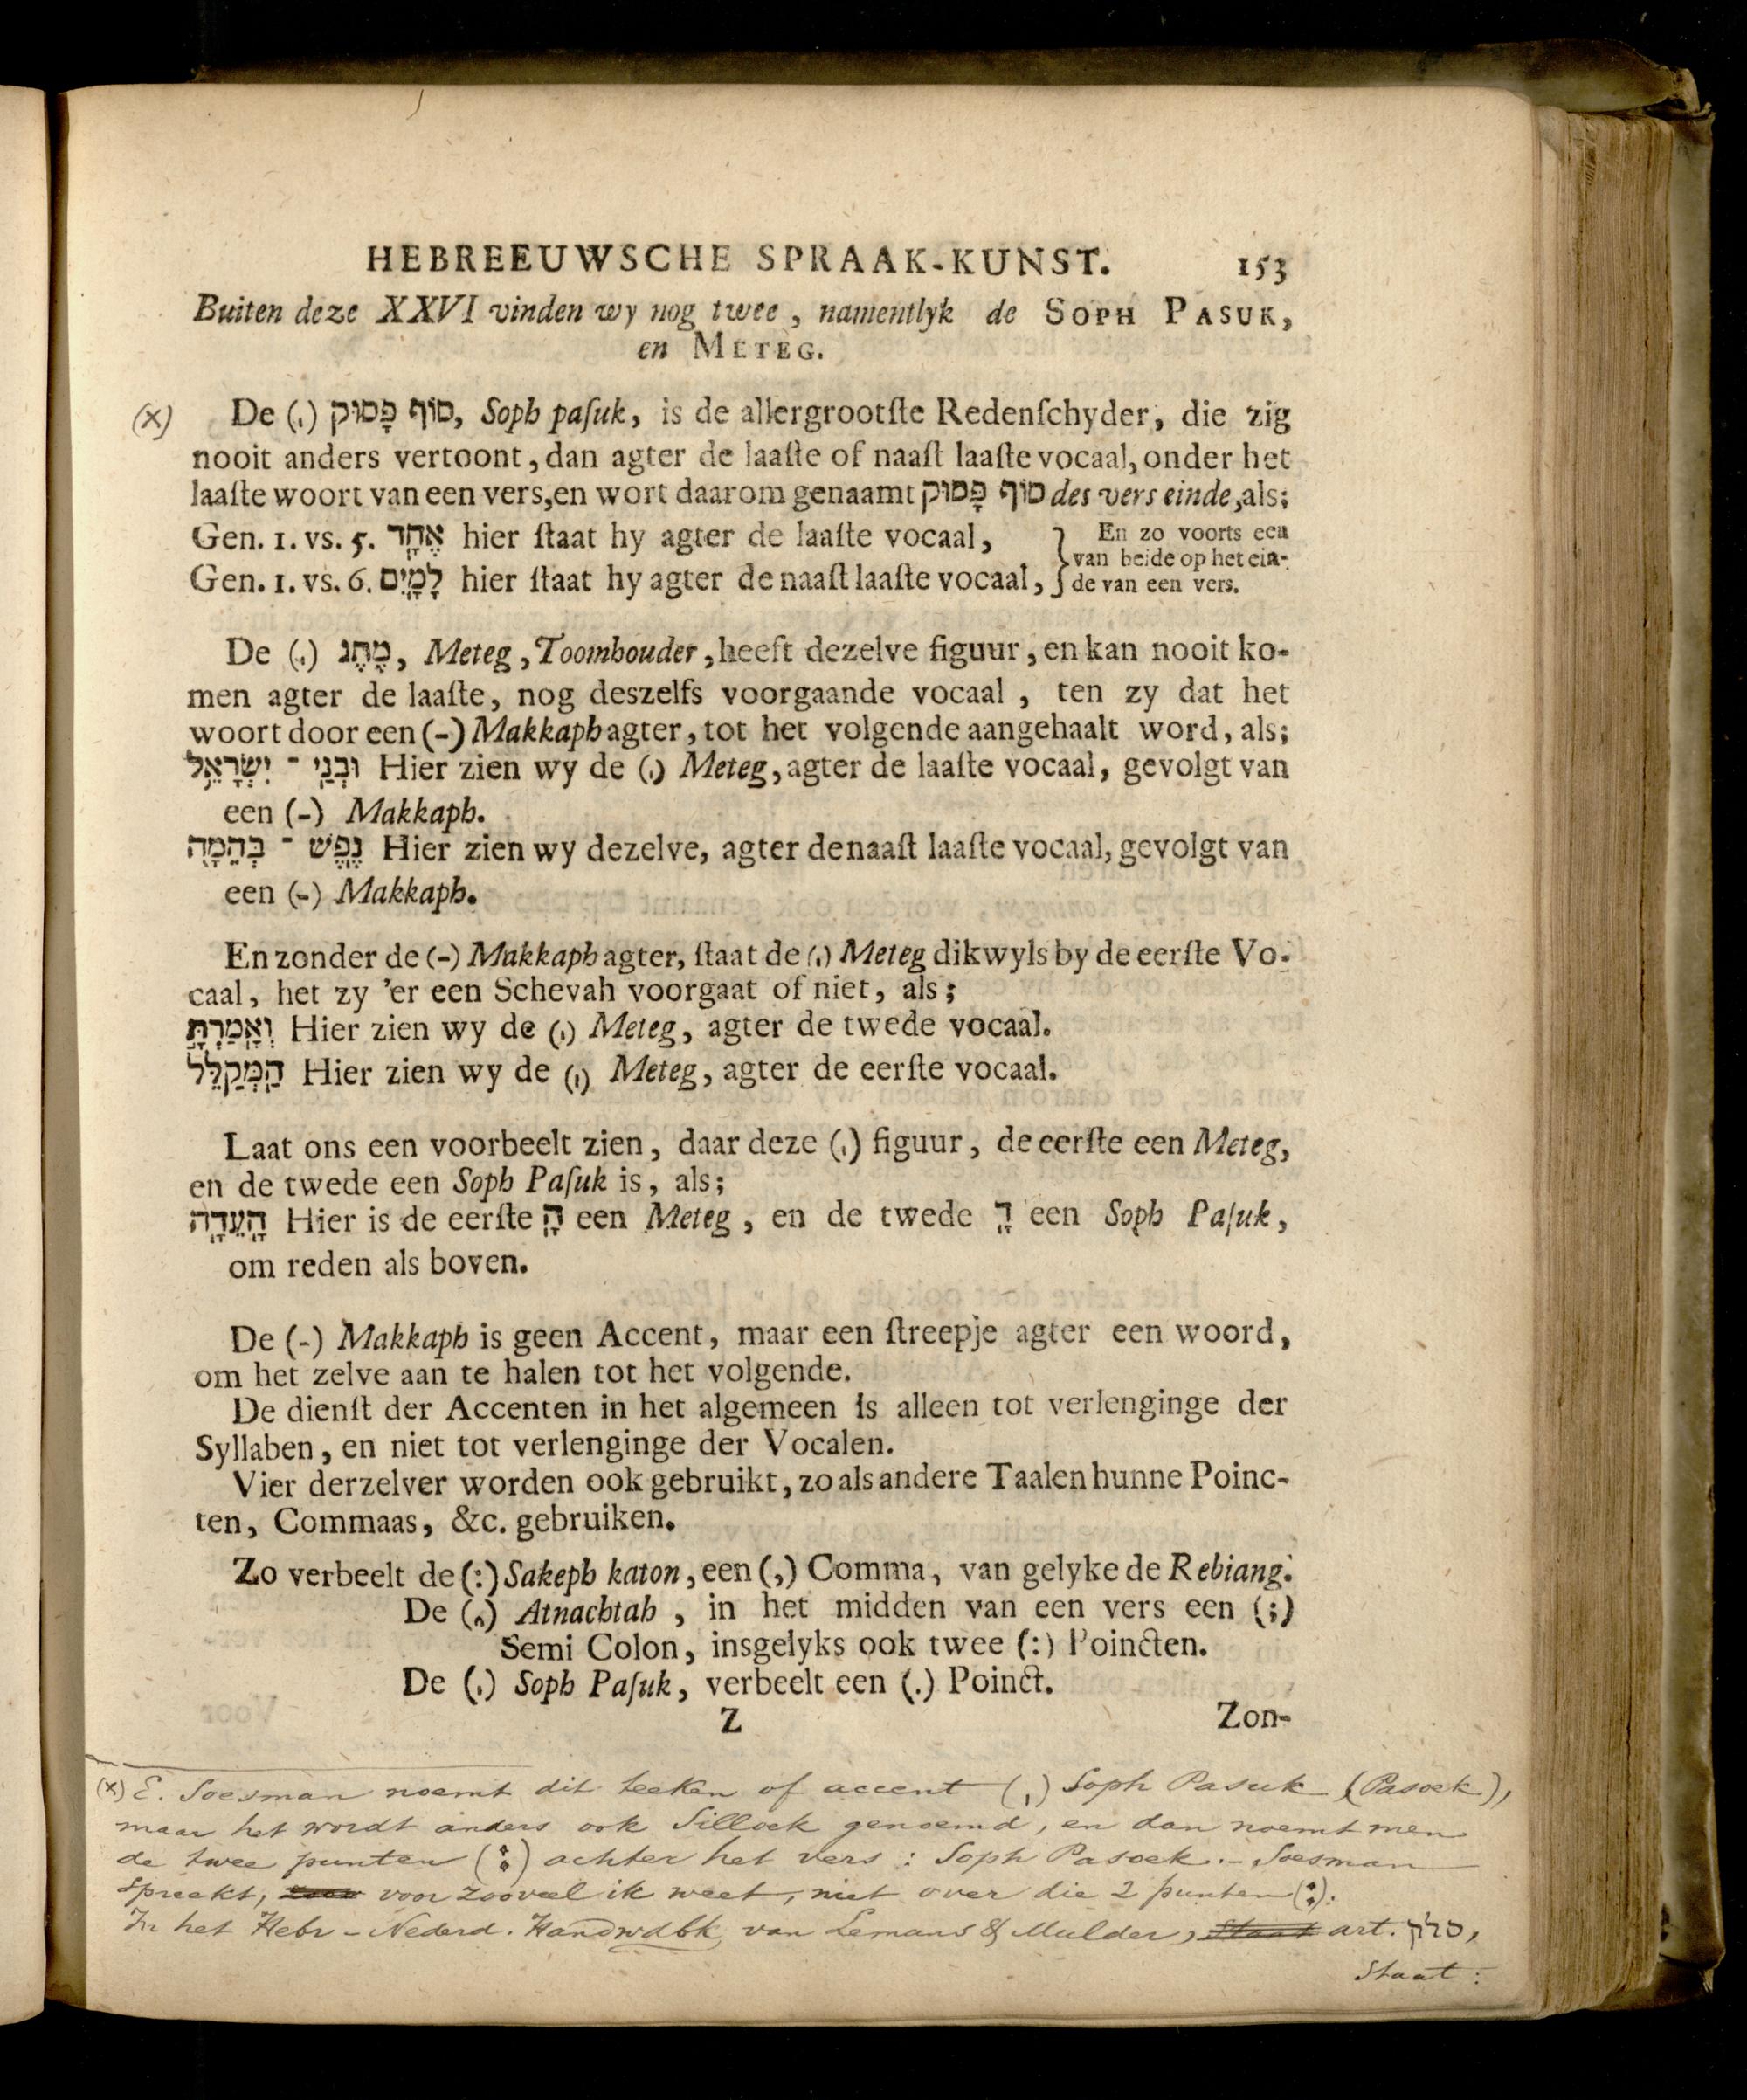 HEBREEUWSCHE SPRAAK-KUNST. 153
Buiten deze XXVI vinden wy nog twee, namentlyk de SOPH PASUK,
en METEG.
(x) De (ˌ) סוֹף פָּסוּק, Soph paſuk, is de allergrootſte Redenſchyder, die zig
nooit anders vertoont, dan agter de laaſte of naaſt laaſte vocaal, onder het
laaſte woort van een vers, en wort daarom genaamt סוֹף פָּסוּק des vers einde, als;
Gen. 1. vs. 5. אֶחָֽד hier ſtaat hy agter de laaſte vocaal,
Gen. 1. vs. 6. לָמָֽיִם hier ſtaat hy agter de naaſt laaſte vocaal,
} En zo voorts een
van beide op het ein-
de van een vers.
De (ˌ) מֶתֶג, Meteg, Toomhouder, heeft dezelve figuur, en kan nooit ko-
men agter de laaſte, nog deszelfs voorgaande vocaal, ten zy dat het
woort door een (-) Makkaph agter, tot het volgende aangehaalt word, als;
וּבְנֵֽי ־ יִשְׂרָאֵל Hier zien wy de (ˌ) Meteg, agter de laaſte vocaal, gevolgt van
een (-) Makkaph.
נֶֽפֶשׁ ־ בְּהֵמָה Hier zien wy dezelve, agter de naaſt laaſte vocaal, gevolgt van
een (-) Makkaph.
En zonder de (-) Makkaph agter, ſtaat de (ˌ) Meteg dikwyls by de eerſte Vo-
caal, het zy 'er een Schevah voorgaat of niet, als;
וְאָֽמַרְתָּ Hier zien wy de (ˌ) Meteg, agter de twede vocaal.
הַֽמְקַלֵּל Hier zien wy de (ˌ) Meteg, agter de eerſte vocaal.
Laat ons een voorbeelt zien, daar deze (ˌ) figuur, de eerſte een Meteg,
en de twede een Soph Paſuk is, als;
הָֽעֵדָֽה Hier is de eerſte הָֽ een Meteg, en de twede דָֽ een Soph Paſuk,
om reden als boven.
De (-) Makkaph is geen Accent, maar een ſtreepje agter een woord,
om het zelve aan te halen tot het volgende.
De dienſt der Accenten in het algemeen is alleen tot verlenginge der
Syllaben, en niet tot verlenginge der Vocalen.
Vier derzelver worden ook gebruikt, zo als andere Taalen hunne Poinc-
ten, Commaas, &c. gebruiken.
Zo verbeelt de (:) Sakeph katon, een (,) Comma, van gelyke de Rebiang.
De (^) Atnachtah, in het midden van een vers een (;)
Semi Colon, insgelyks ook twee (:) Poincten.
De (ˌ) Soph Paſuk, verbeelt een (.) Poinct.
Z Zon-
(x) E. Soesman noemt dit teeken of accent (ˌ) Soph Pasuk (Pasoek),
maar het wordt anders ook Silloek genoemd, en dan noemt men
de twee punten (:) achter het vers: Soph Pasoek. - Soesman
spreekt, voor zooveel ik weet, niet over die 2 punten (:).
In het Hebr-Nederd. Handwdbk van Lemans & Mulder, staat art. סלק,
Staat: